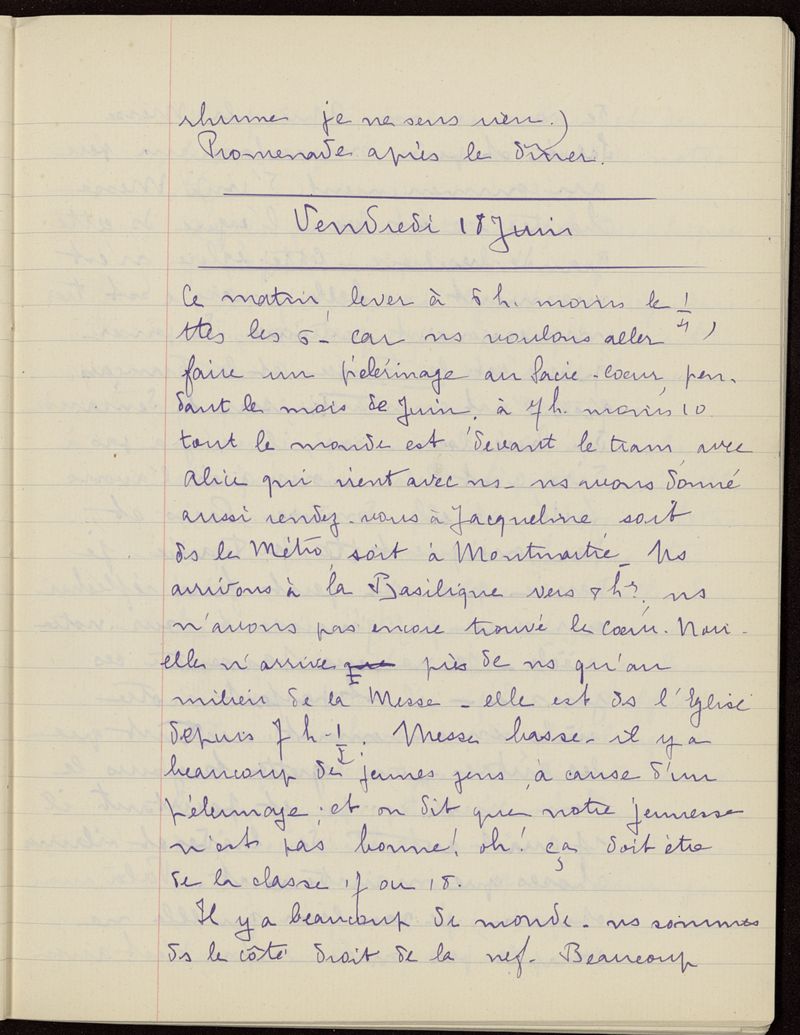 rhume je ne sens rien.)
Promenade après le dîner.
Vendredi 18 Juin
Ce matin lever à 6 h. moins le 1/4,
ttes les 5 - car ns voulons aller
faire un pélérinage au Sacré-cœur, pen-
dant le mois de Juin. à 7 h. moins 10
tout le monde est devant le tram avec
Alice qui vient avec ns - ns avons donné
aussi rendez-vous à Jacqueline soit
ds le Métro, soit à Montmartre - Ns
arrivons à la Basilique vers 8 h, ns
n'avons pas encore trouvé le cœur. Nou-
elle n'arrive que près de ns qu'au
milieu de la Messe - elle est ds l'Eglise
depuis 7 h - 1/2. Messe basse - il y a
beaucoup de jeunes gens, à cause d'un
pélerinage, et on dit que notre jeunesse
n'est pas bonne! oh! ça doit être
de la classe 17 ou 18.
Il y a beaucoup de monde - ns sommes
ds le côté droit de la nef - Beaucoup